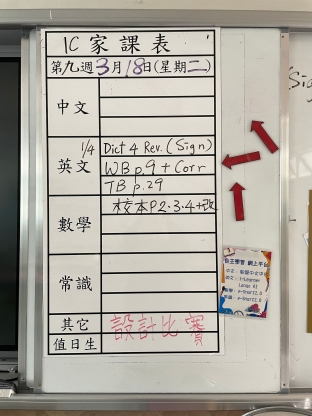 1C 家課表
第九週3月18日(星期二)
中文
英文 1/4 Dict 4 Rev. (Sign)
WB p.9 + Corr
TB p.29
數學 校本P.2.3.4+改
常識
其它 設計比賽
值日生
自主學習 網上平台